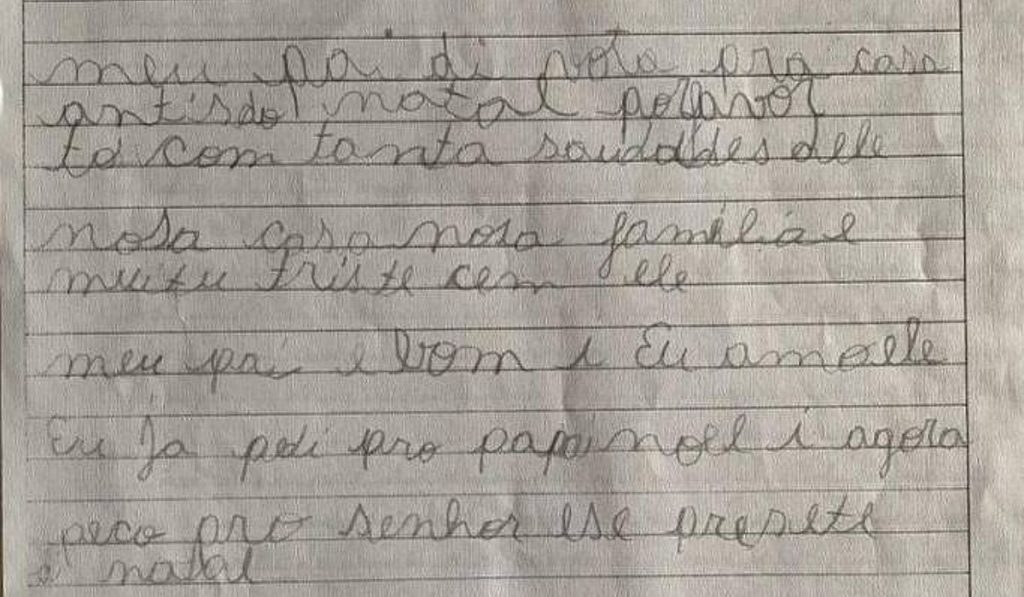 meu pai di vota pra casa
antis do natal porfavor
to com tanta saudades dele
nosa casa nosa familia e
muitu triste cem ele
meu pai e bom i Eu amo ele
Eu Ja pedi pro papai noel i agora
peco pro senhor ese presete
natal